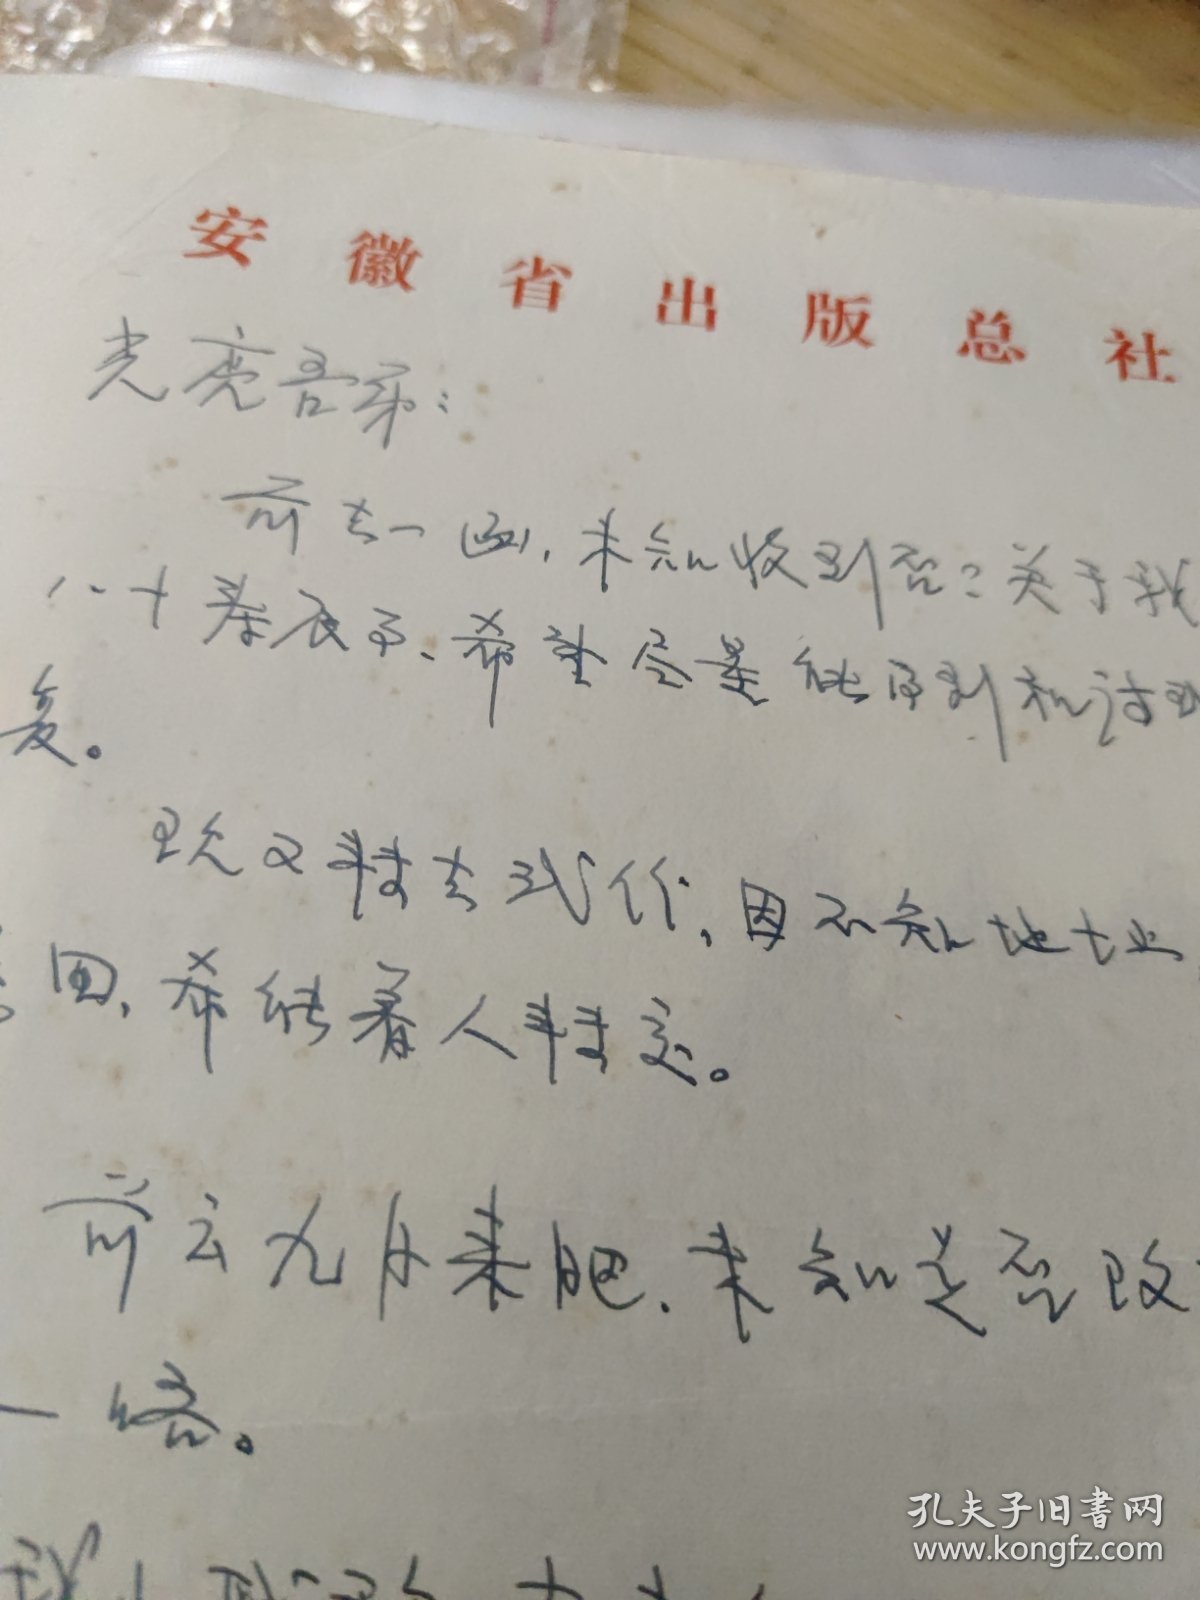 安徽省出版总社
光亮吾弟：
前去一函，未知收到否？关于我
八十寿辰事、希望尽量能
复。
现又转去式份，因不知地址
图，希能着人转交。
前云九月来肥，未知是否改
一络。
孔夫子旧书网
www.kongfz.com